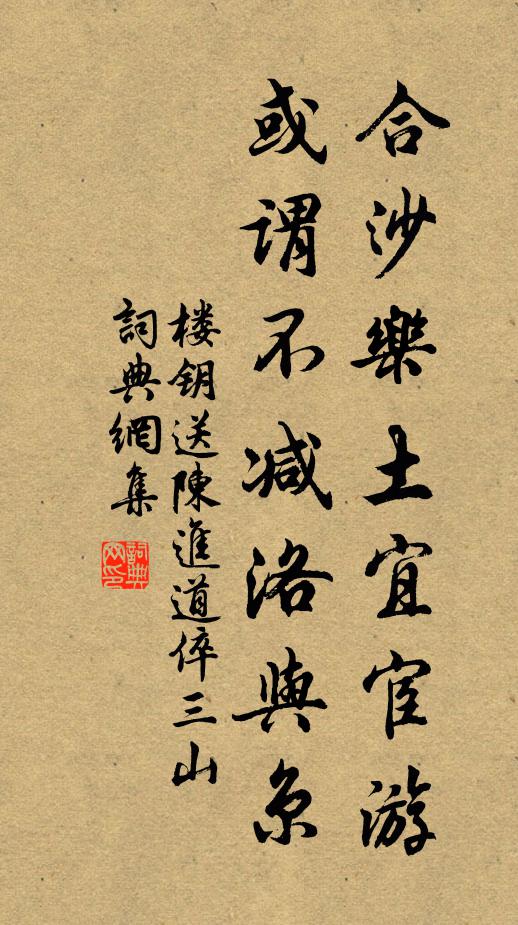 合沙樂土宜宦游
或謂不減洛與京
楼钥送陳進道倅三山
詞典網集